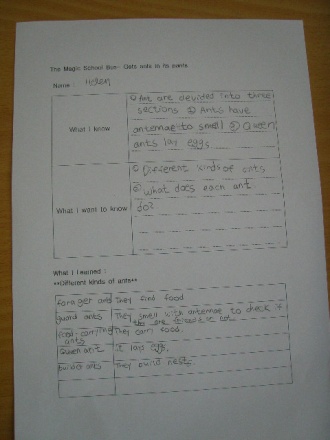 The Magic School Bus- Gets ants in its pants
Name : Helen
What I know
① Ant are devided into three
sections ② Ants have
antennae to smell ③ Queen
ants lay eggs
What I want to know
① Different kinds of ants
② what does each ant
do?
What I learned :
**Different kinds of ants**
forager ant They find food
guard ants They smell with antennae to check if
food-carrying ants They carry food.
Queen ant it lays eggs.
builder ants They build nest.